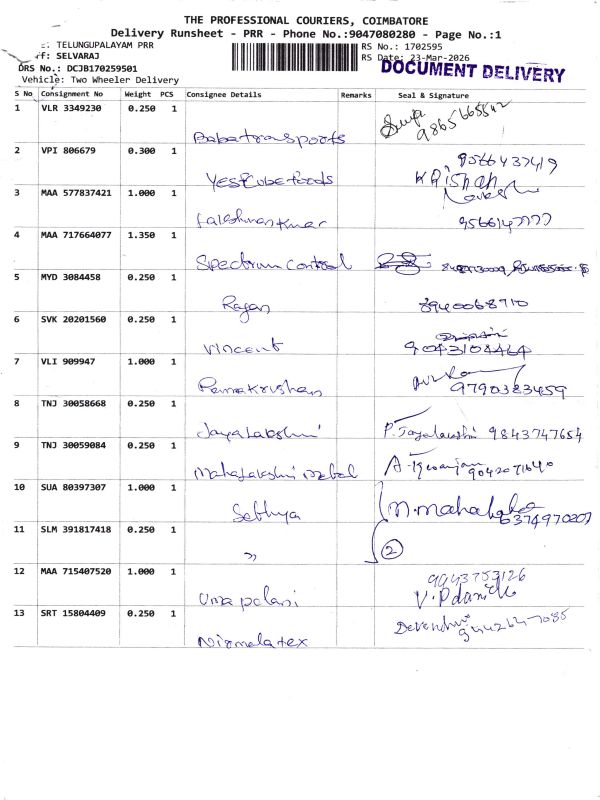 THE PROFESSIONAL COURIERS, COIMBATORE
Delivery Runsheet - PRR - Phone No.:9047080280 - Page No.:1
: TELUNGUPALAYAM PRR
ff: SELVARAJ
DRS No.: DCJB170259501
Vehicle: Two Wheeler Delivery
RS No.: 1702595
RS Date: 23-Mar-2026
DOCUMENT DELIVERY
S No Consignment No Weight PCS Consignee Details Remarks Seal & Signature
1 VLR 3349230 0.250 1 Babatransports 9865665542
2 VPI 806679 0.300 1 Yescubefoods 9566437419
KRISHAN
3 MAA 577837421 1.000 1 Lakshmankumar 9566147777
4 MAA 717664077 1.350 1 Spectrum control
5 MYD 3084458 0.250 1 Rajan 8940068710
6 SVK 20201560 0.250 1 Vincent 9043104464
7 VLI 909947 1.000 1 Ramakrishan 9790383459
8 TNJ 30058668 0.250 1 Jayalakshmi P. Jayalakshmi 9843747654
9 TNJ 30059084 0.250 1 Mahalakshmi 9042071640
10 SUA 80397307 1.000 1 Sathya 6374970207
11 SLM 391817418 0.250 1 " 2
12 MAA 715407520 1.000 1 Uma palani 9943753126
13 SRT 15804409 0.250 1 Nirmalatex